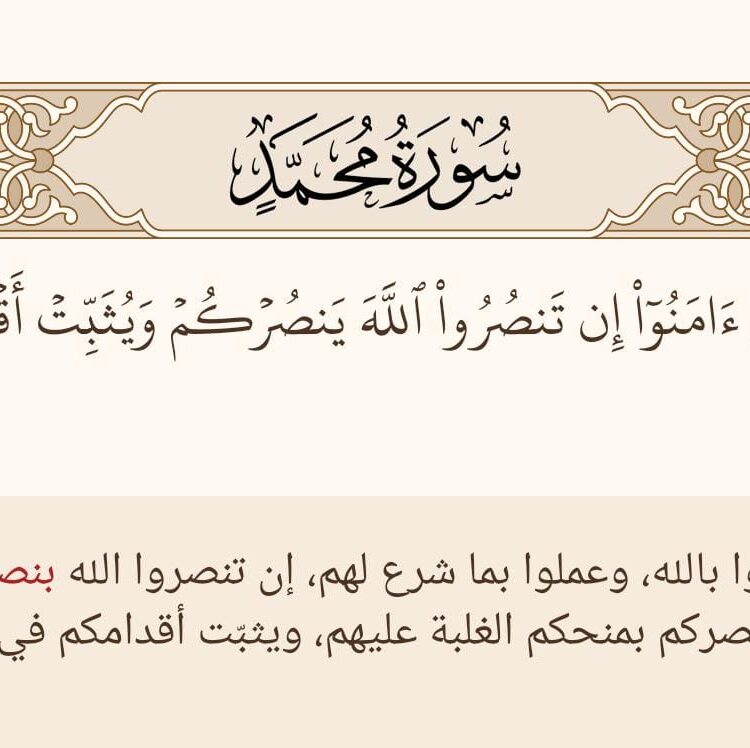 سُورَةُ مُحَمَّدٍ
ءَامَنُوٓا۟ إِن تَنصُرُوا۟ ٱللَّهَ يَنصُرۡكُمۡ وَيُثَبِّتۡ
بالله، وعملوا بما شرع لهم، إن تنصروا الله
بمنحكم الغلبة عليهم، ويثبّت أقدامكم في